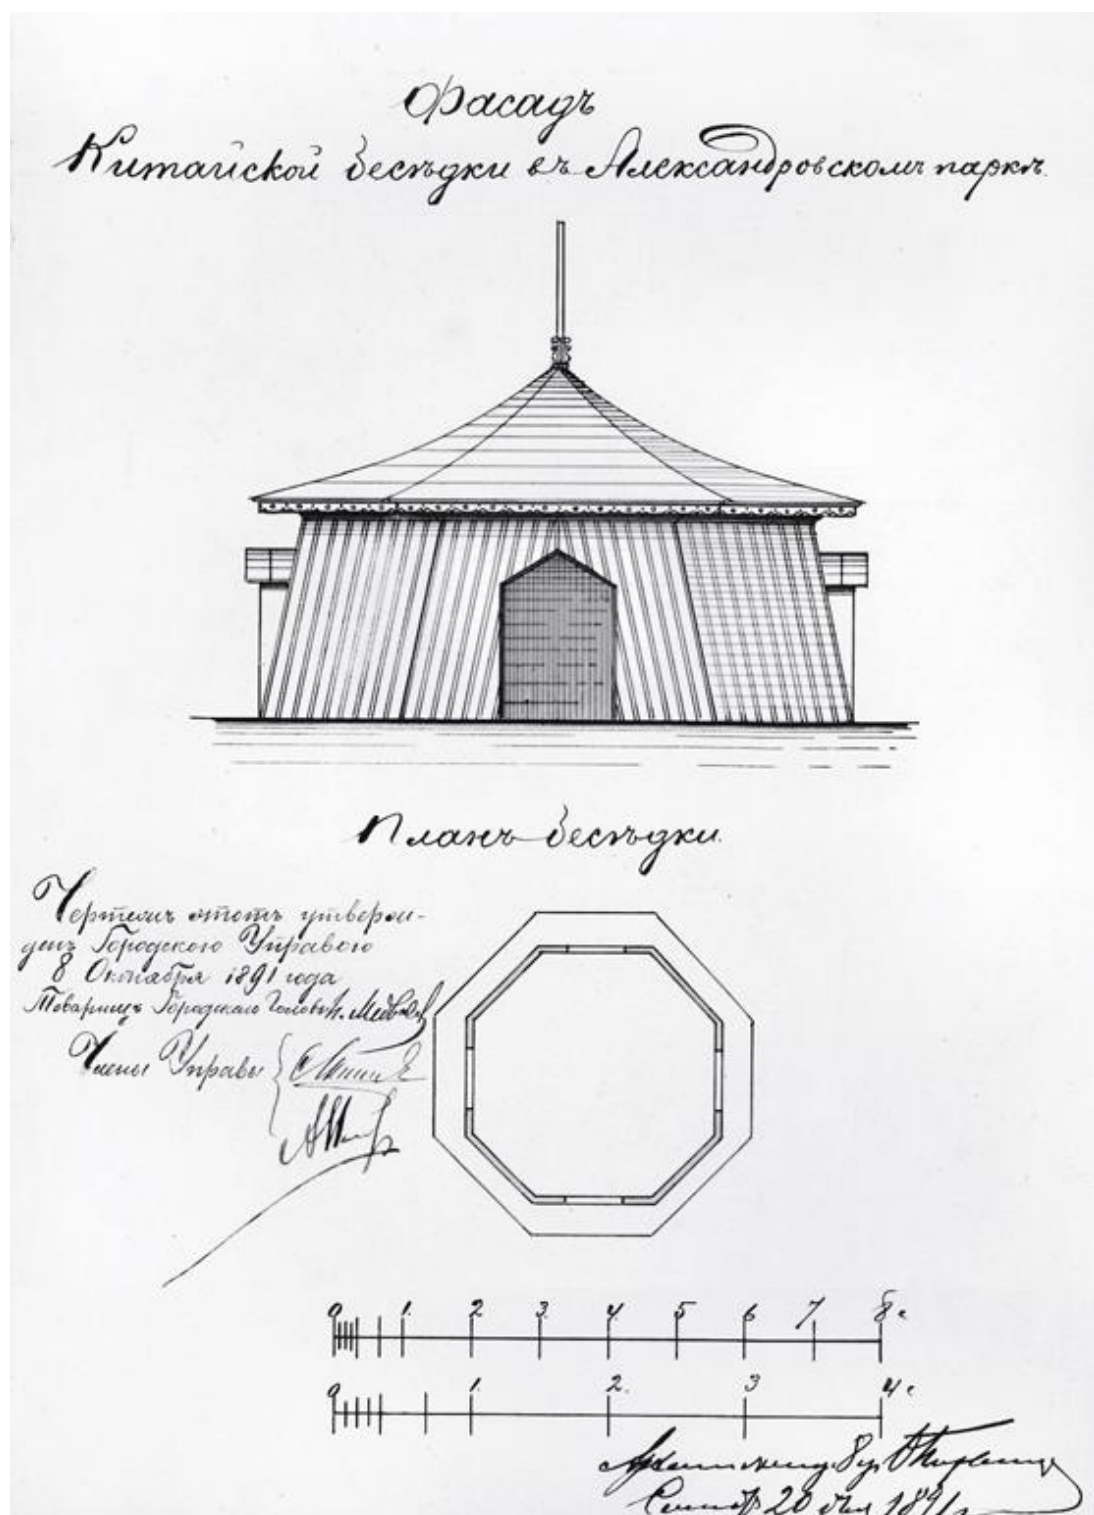 Фасадъ
Китайской бесѣдки въ Александровскомъ паркѣ.
Планъ бесѣдки.
Чертежъ этотъ утверж-
денъ Городскою Управою
8 Октября 1891 года
Товарищъ Городского Головы
Члены Управы
0 1. 2 3. 4. 5 6 7 8 с
0 1. 2. 3 4 с
20 дня 1891 г